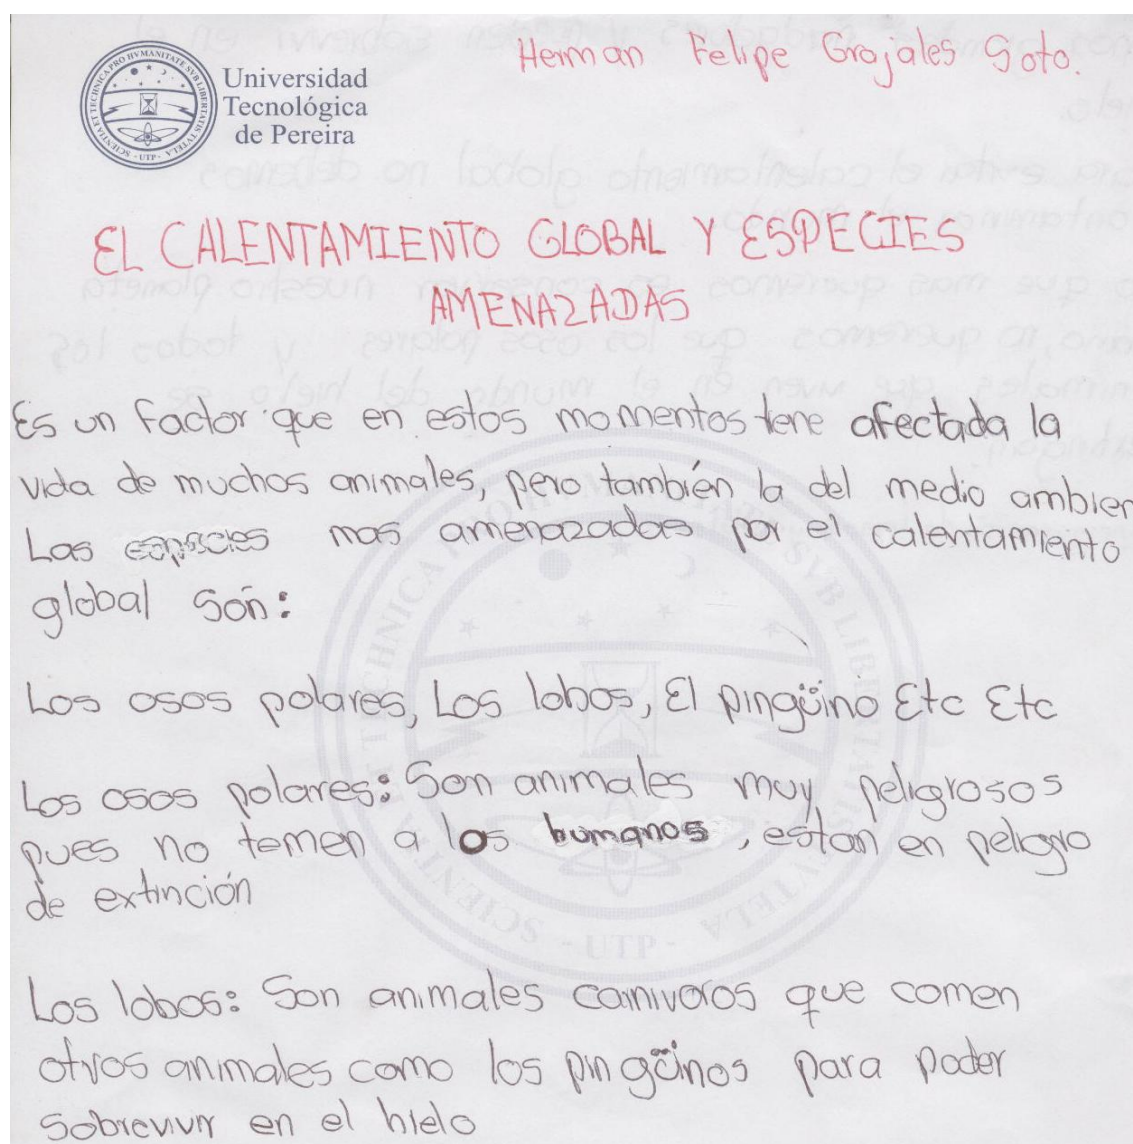 Herman Felipe Grajales Soto.
Universidad
Tecnológica
de Pereira
SCIENTIA ET TECHNICA PRO HVMANITATE SVB LIBERTATIS TVTELA
- UTP -
EL CALENTAMIENTO GLOBAL Y ESPECIES
AMENAZADAS
Es un factor que en estos momentos tiene afectada la
vida de muchos animales, pero también la del medio ambien
Las especies mas amenazadas por el calentamiento
global son:
Los osos polares, Los lobos, El pingüino Etc Etc
Los osos polares: Son animales muy peligrosos
pues no temen a los humanos, están en peligro
de extinción
Los lobos: Son animales carnivoros que comen
otros animales como los pingüinos para poder
sobrevivir en el hielo